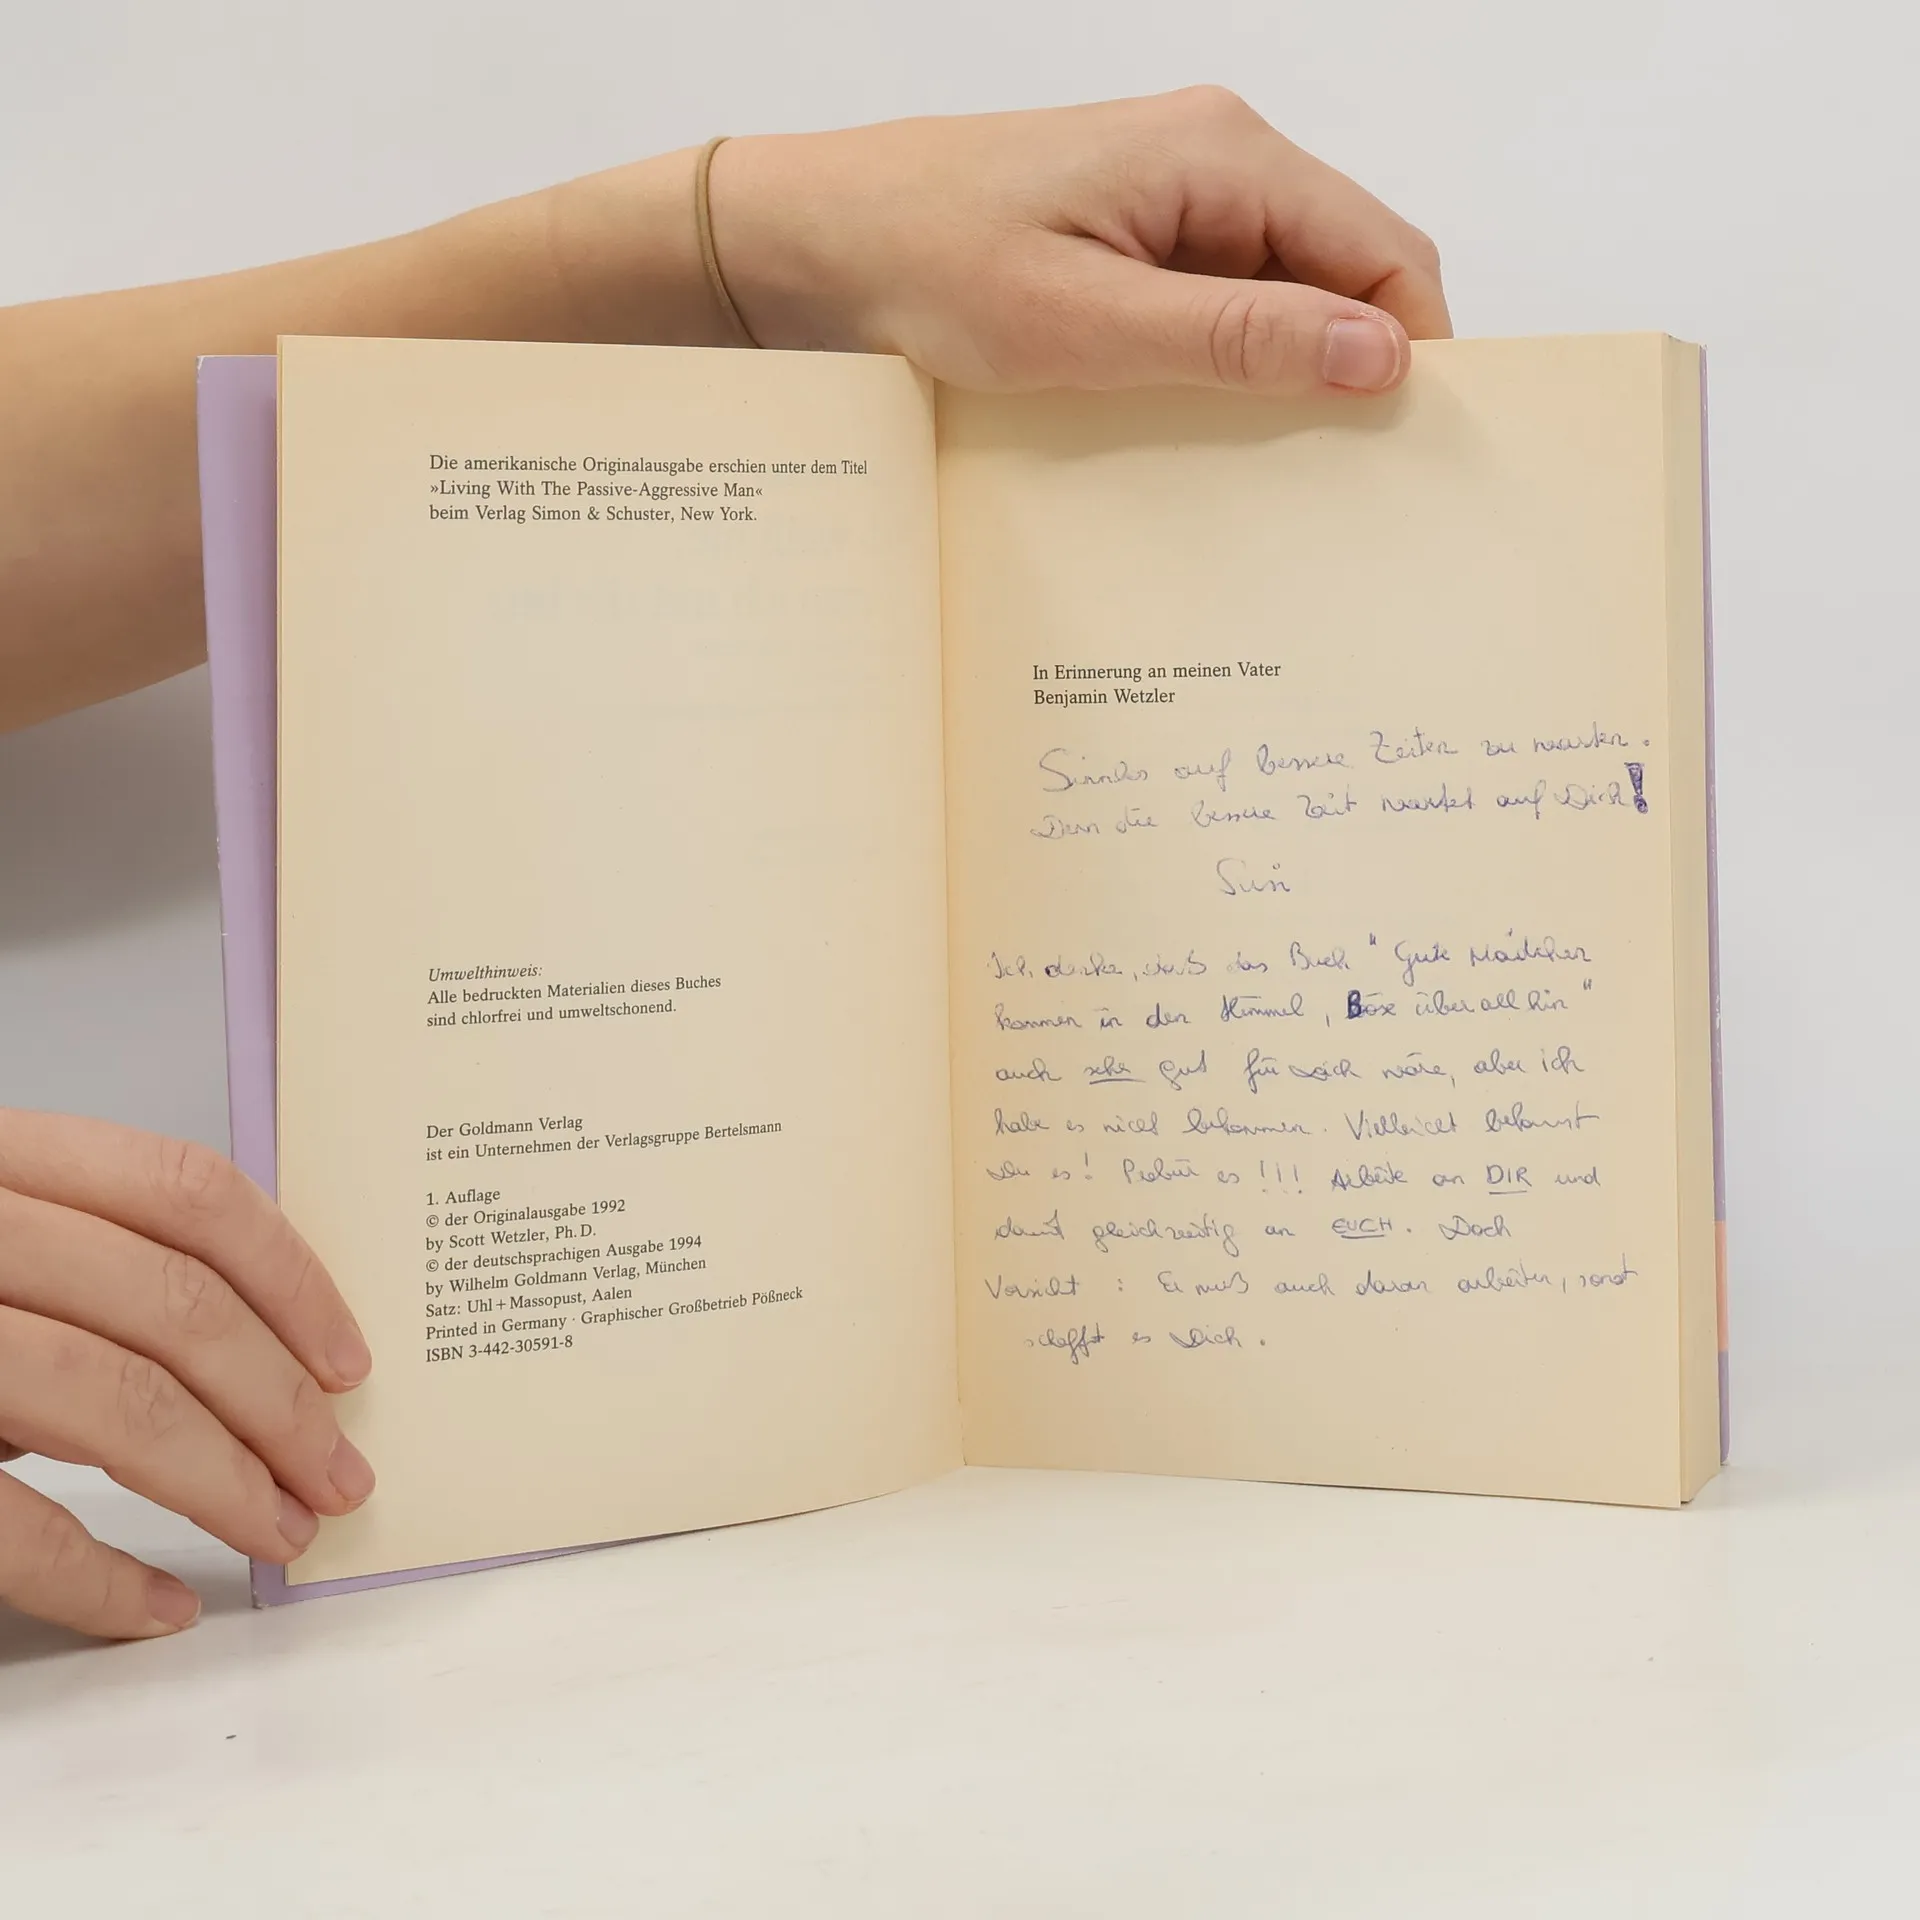 Die amerikanische Originalausgabe erschien unter dem Titel
»Living With The Passive-Aggressive Man«
beim Verlag Simon & Schuster, New York.
Umwelthinweis:
Alle bedruckten Materialien dieses Buches
sind chlorfrei und umweltschonend.
Der Goldmann Verlag
ist ein Unternehmen der Verlagsgruppe Bertelsmann
1. Auflage
© der Originalausgabe 1992
by Scott Wetzler, Ph. D.
© der deutschsprachigen Ausgabe 1994
by Wilhelm Goldmann Verlag, München
Satz: Uhl + Massopust, Aalen
Printed in Germany · Graphischer Großbetrieb Pößneck
ISBN 3-442-30591-8
In Erinnerung an meinen Vater
Benjamin Wetzler
Sinnlos auf bessere Zeiten zu warten.
Denn die bessere Zeit wartet auf Dich!
Ich denke, daß das Buch "Gute Mädchen
kommen in den Himmel, Böse überall hin"
auch sehr gut für Dich wäre, aber ich
habe es nicht bekommen. Vielleicht bekommst
Du es! Probier es!!! Arbeite an DIR und
damit gleichzeitig an EUCH. Doch
Vorsicht: Er muß auch daran arbeiten, sonst
schafft es Dich.